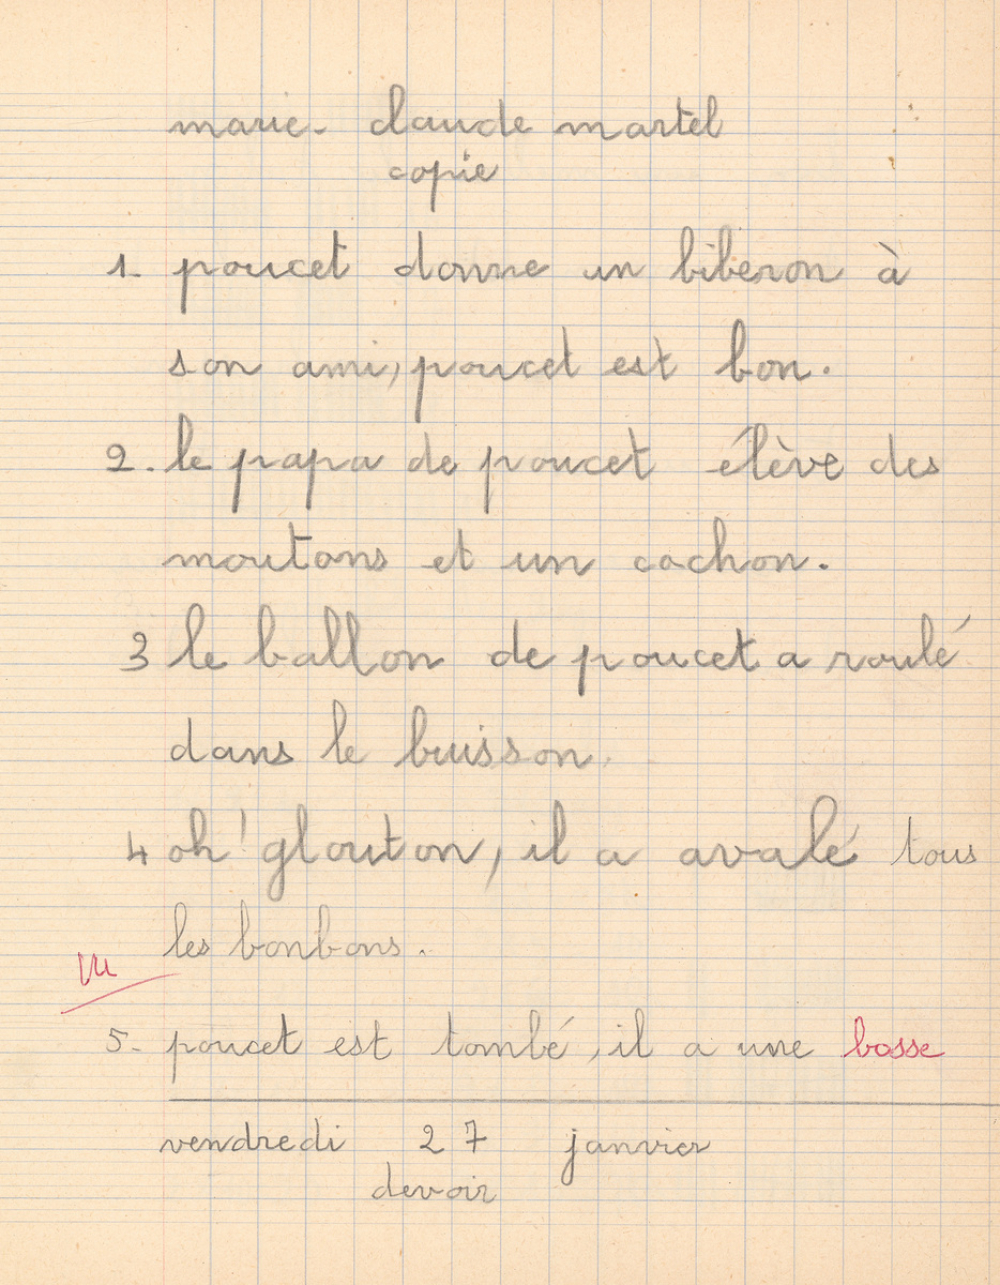 marie-claude martel
copie
1. poucet donne un biberon à
son ami, poucet est bon.
2. le papa de poucet élève des
moutons et un cochon.
3 le ballon de poucet a roulé
dans le buisson.
4 oh! glouton, il a avalé tous
les bonbons.
vu
5. poucet est tombé, il a une bosse
vendredi 27 janvier
devoir